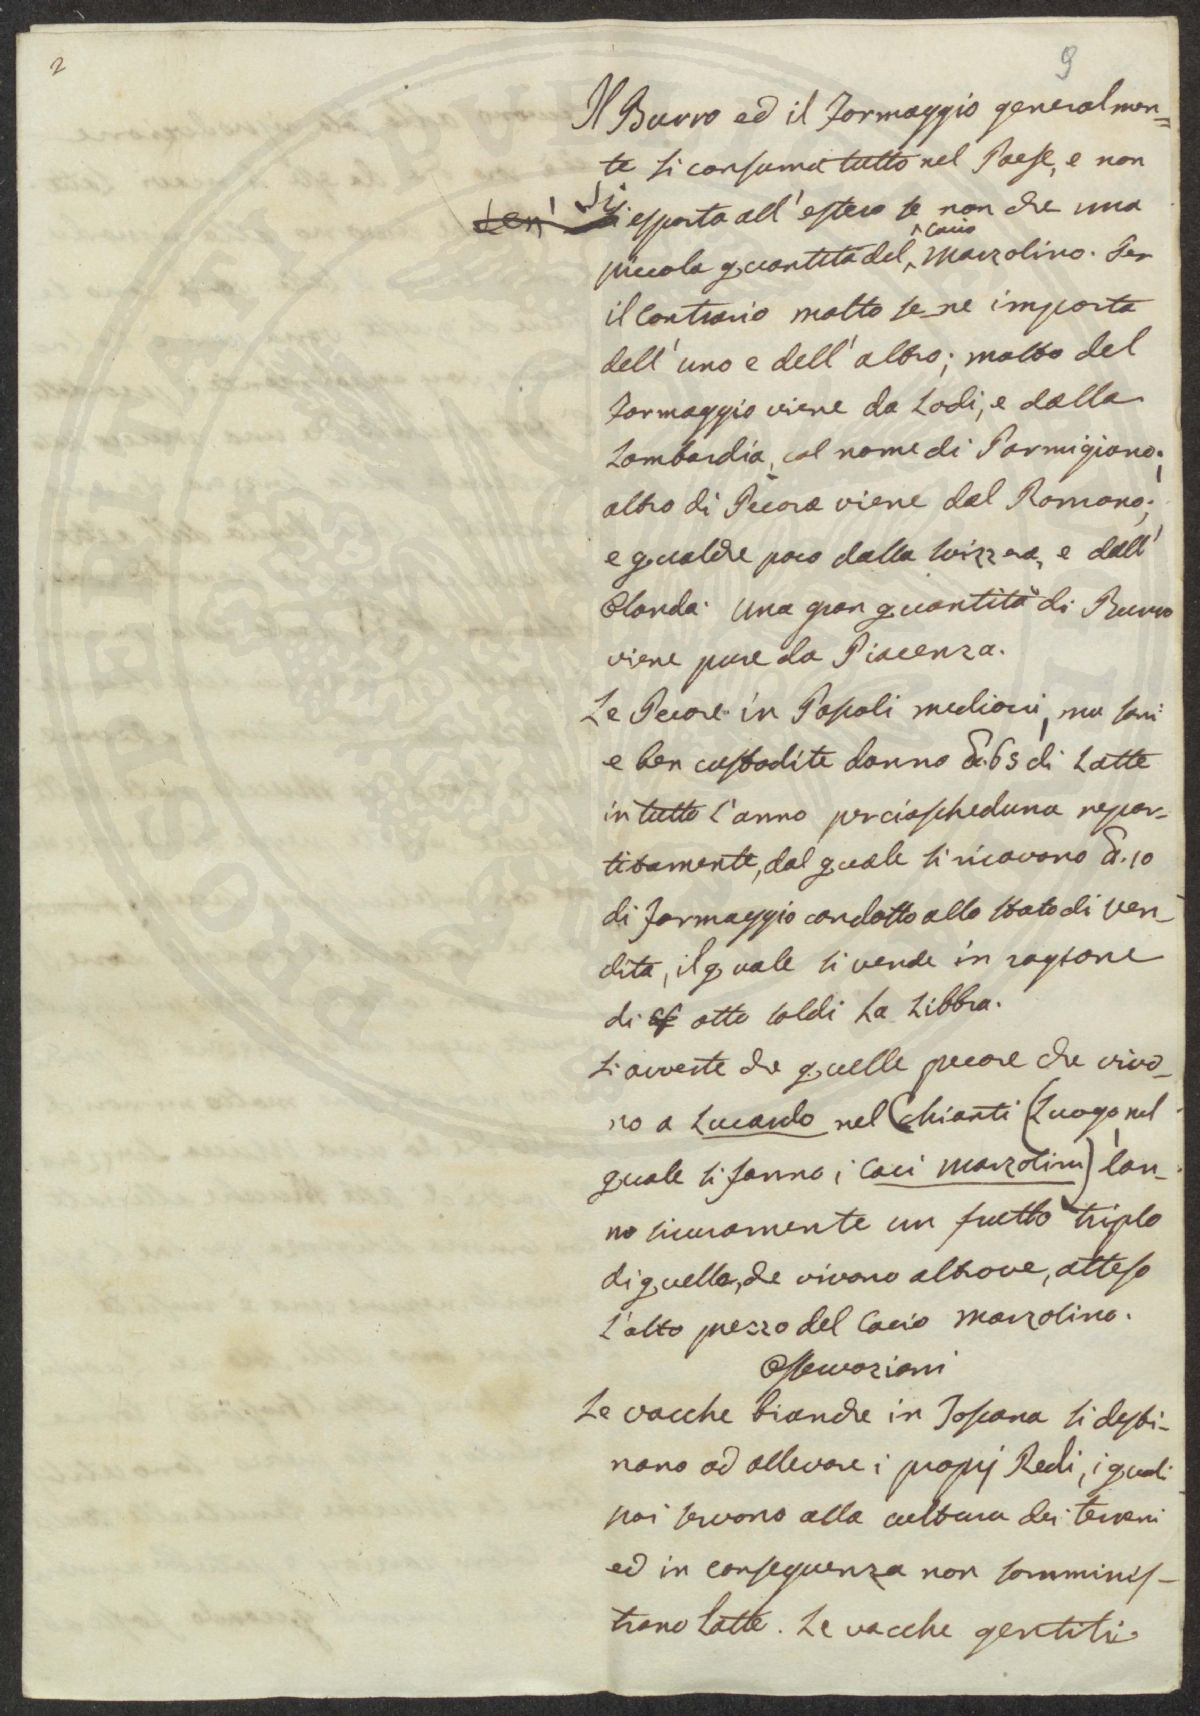 2
9
Il Burro ed il Formaggio generalmen=
te si consuma tutto nel Paese, e non
Si esporta all'estero se non che una
piccola quantità del cacio Marzolino. Per
il contrario molto se ne importa
dell'uno e dell'altro; molto del
Formaggio viene da Lodi, e dalla
Lombardia, col nome di Parmigiano;
altro di Pecora viene dal Romano;
e qualche poco dalla Svizzera, e dall'
Olanda. Una gran quantità di Burro
viene pure da Piacenza.
Le Pecore in Pascoli mediocri, ma sani
e ben custodite danno 65 di Latte
in tutto l'anno per ciascheduna repar-
titamente, dal quale si ricavano 10
di Formaggio condotto allo stato di ven-
dita, il quale si vende in ragione
di otto soldi La Libbra.
Si avverte che quelle pecore che vivo-
no a Lucardo nel Chianti (Luogo nel
quale si fanno i Caci Marzolini) dan-
no sicuramente un frutto triplo
di quelle, che vivono altrove, atteso
L'alto prezzo del Cacio Marzolino.
Osservazioni
Le vacche bianche in Toscana si desti-
nano ad allevare i proprj Redi, i quali
poi servono alla cultura dei terreni
ed in conseguenza non somminis-
trano Latte. Le vacche gentili